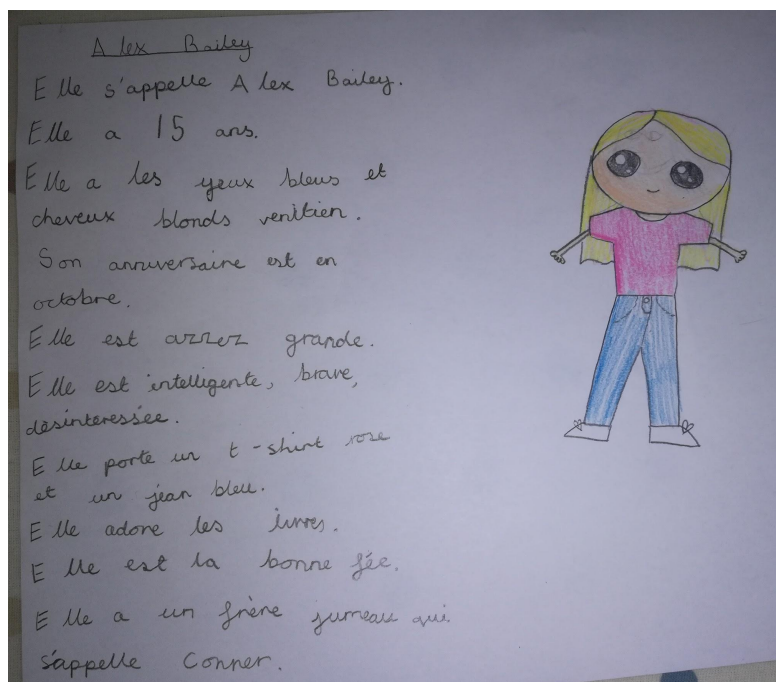 Alex Bailey
Elle s'appelle Alex Bailey.
Elle a 15 ans.
Elle a les yeux bleus et
cheveux blonds venitien.
Son anniversaire est en
octobre.
Elle est azzez grande.
Elle est intelligente, brave,
désinteressée.
Elle porte un t-shirt rose
et un jean bleu.
Elle adore les livres.
Elle est la bonne fée.
Elle a un frère jumeau qui
s'appelle Conner.